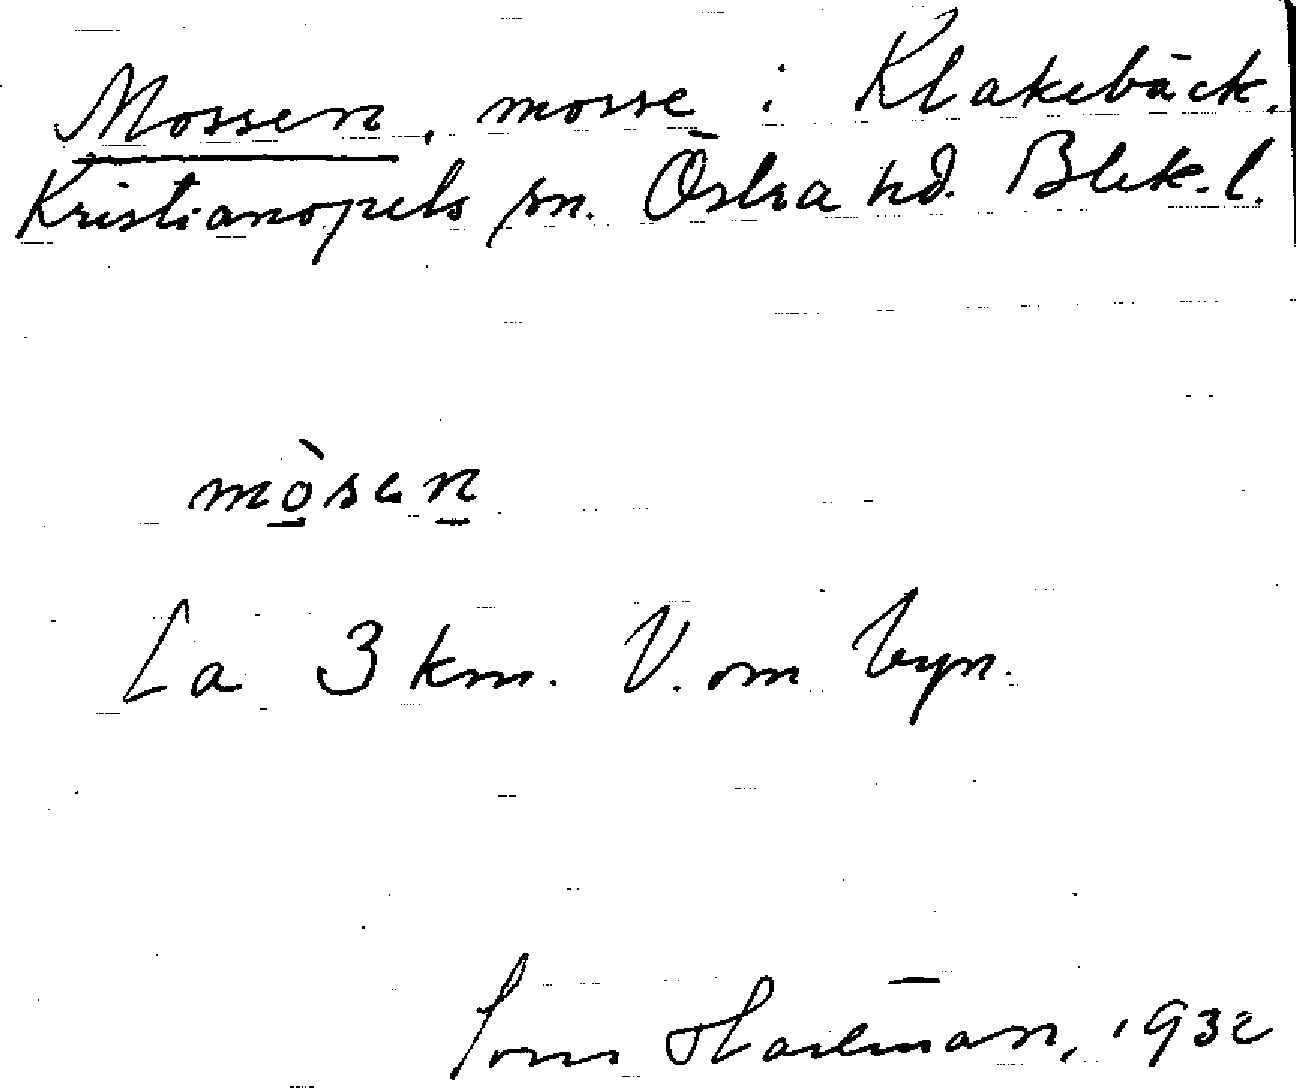 Mossen, mosse i Klakebäck.
Kristianopels sn. Östra hd. Blek. l.
mòsen
Ca 3 km. V. om byn.
1932